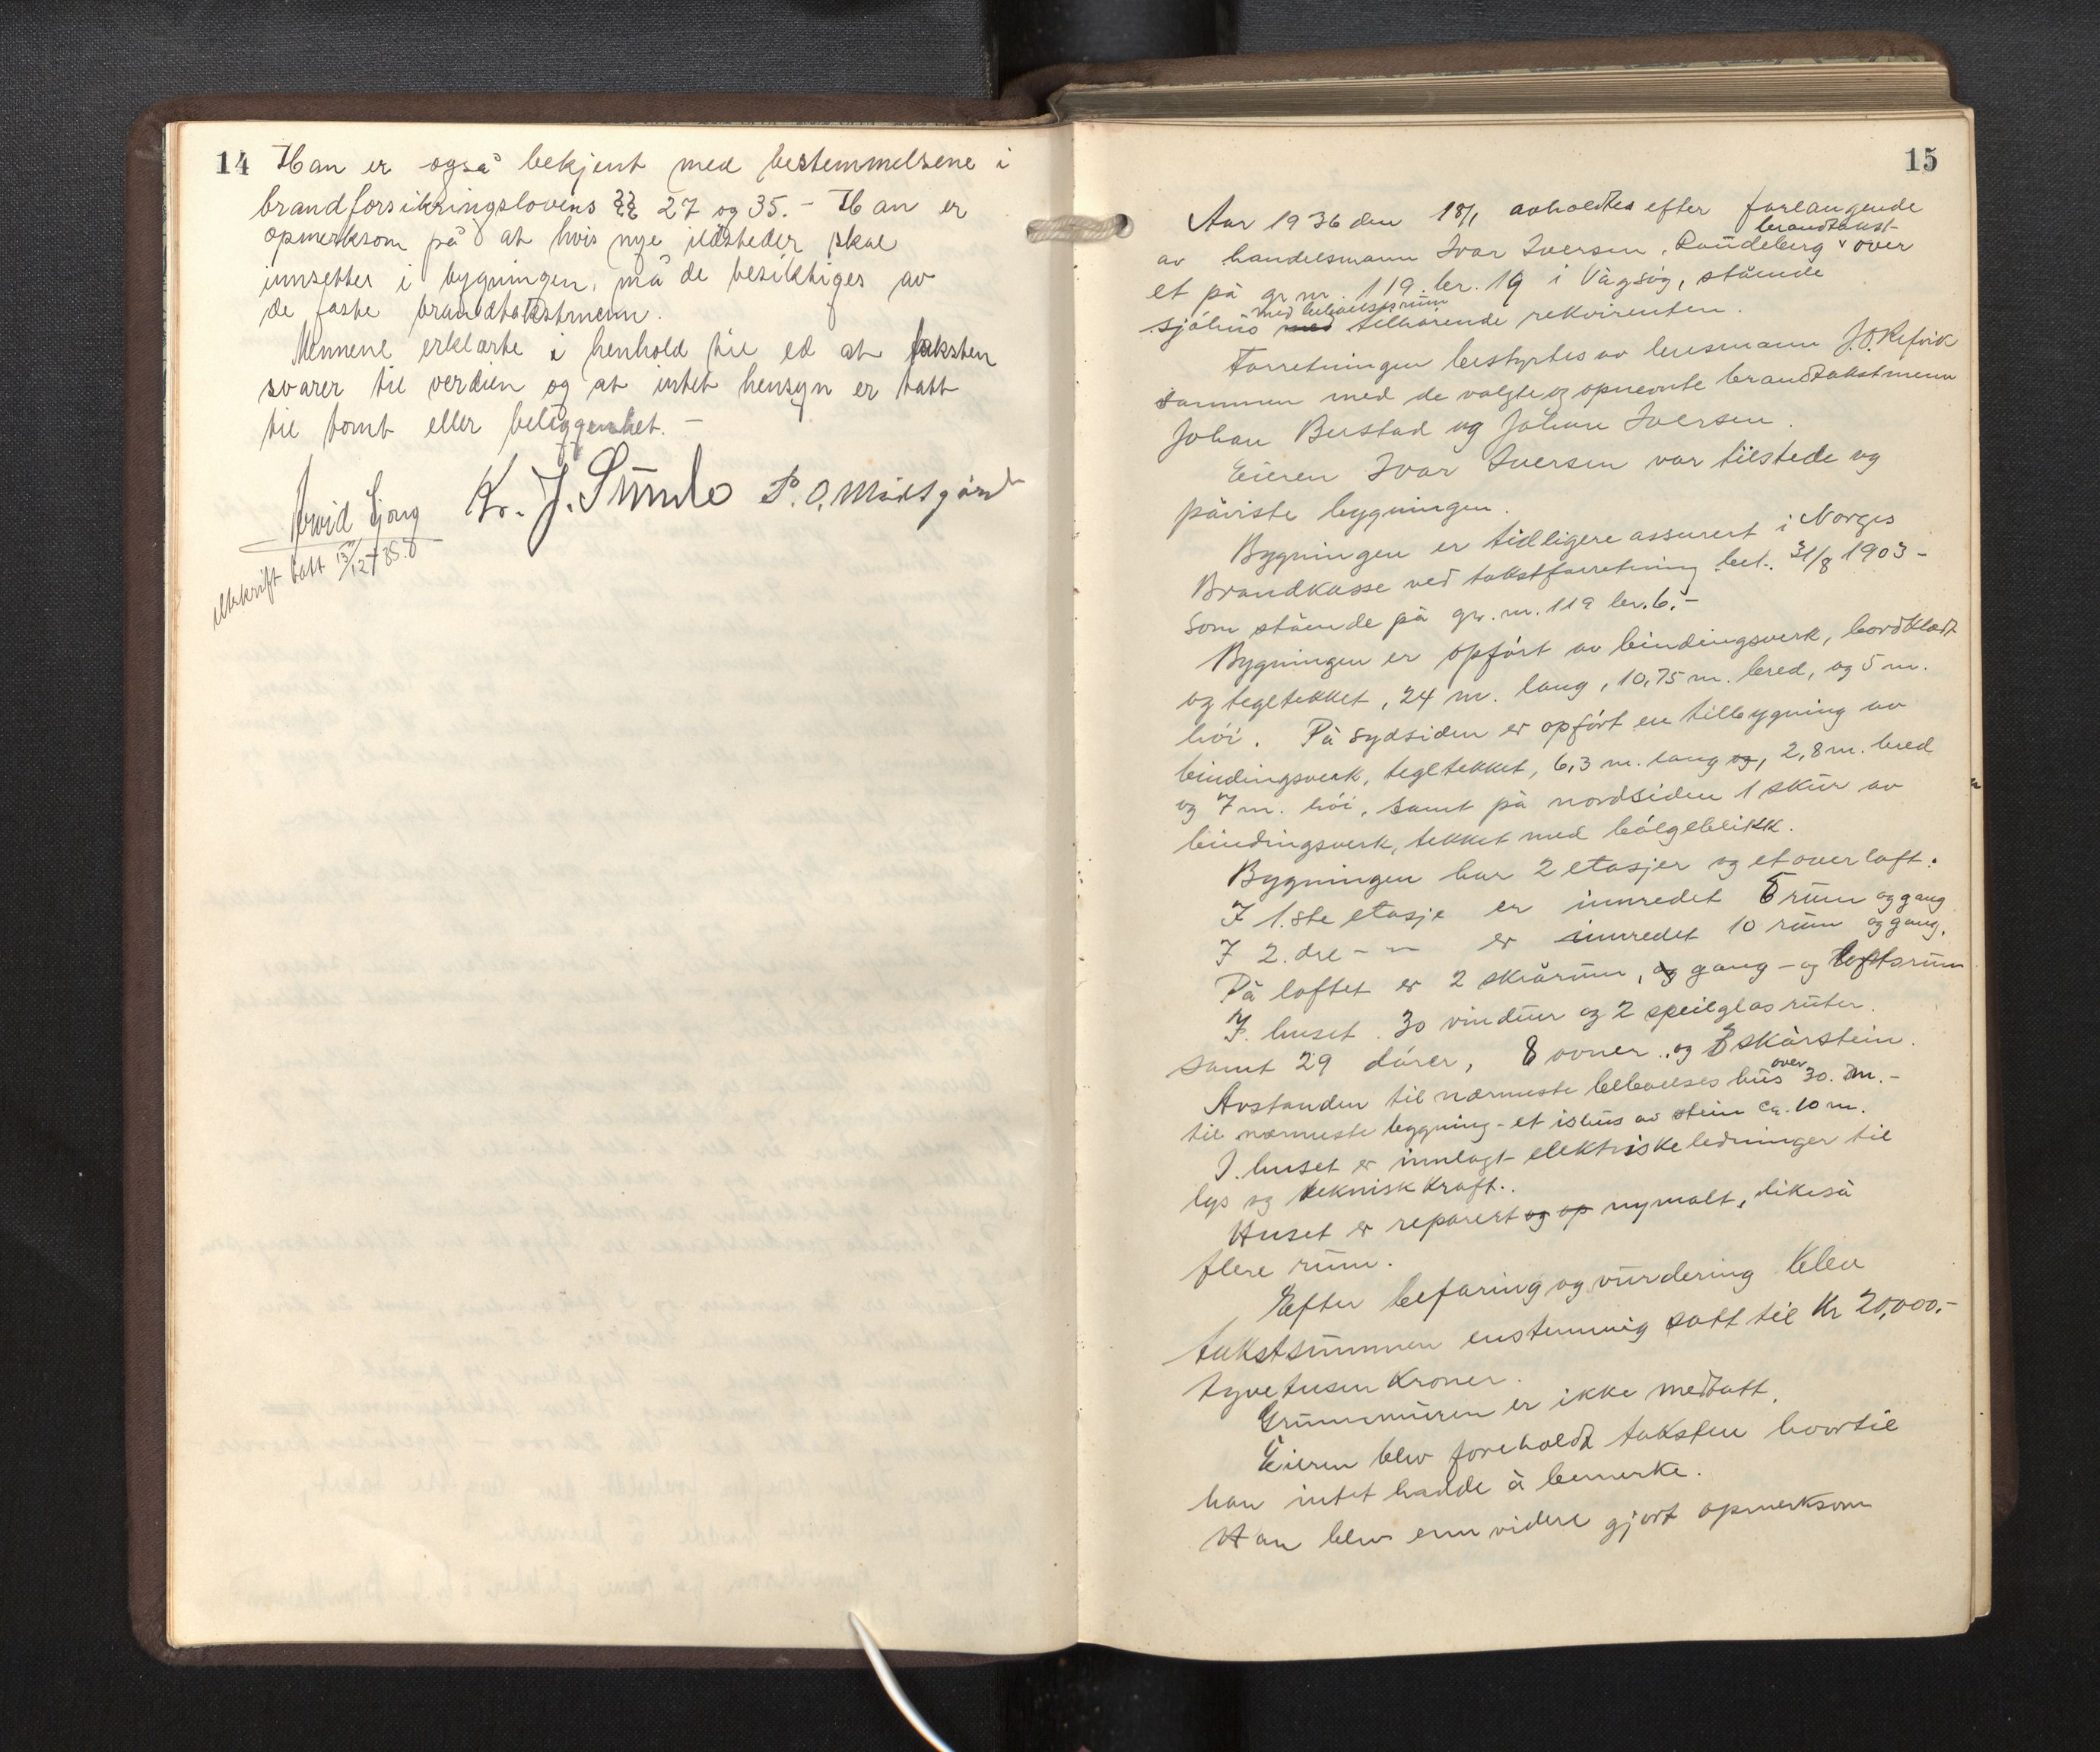 14 Han er også bekjent med bestemmelsene i
brandforsikringslovens §§ 27 og 35. - Han er
opmerksom på at hvis nye ildsteder skal
innsettes i bygningen, må de besiktiges av
de faste brandtakstmenn.
Mennene erklærte i henhold til ed at taksten
svarer til verdien og at intet hensyn er tatt
til tomt eller beliggenhet. -
Arvid Ljong Kr. J. Sunde P. O. Midtgård
Utskrift tatt 13/12-35.
15
Aar 1936 den 18/1 avholdtes efter forlangende
av handelsmann Ivar Iversen, Raudeberg brandtakst over
et på gr. nr. 119 br. 19 i Vågsøy, stående
sjøhus med beboelsesrum med tilhørende rekvirenten.
Forretningen bestyrtes av lensmann J. O. Refvik
sammen med de valgte og opnevnte brandtakstmenn
Johan Berstad og Johan Iversen.
Eieren Ivar Iversen var tilstede og
påviste bygningen.
Bygningen er tidligere assurert i Norges
Brandkasse ved takstforretning bet. 31/8 1903 -
som stående på gr. nr. 119 br. 6. -
Bygningen er opført av bindingsverk, bordklædt
og tegltekket, 24 m. lang, 10,75 m. bred, og 5 m.
høi. På sydsiden er opført en tilbygning av
bindingsverk, tegltekket, 6,3 m. lang og, 2,8 m. bred
og 7 m. høi, samt på nordsiden 1 skur av
bindingsverk, tekket med bølgeblikk.
Bygningen har 2 etasjer og et overloft.
I 1.ste etasje er innredet 6 rum og gang
I 2. dre - " - er innredet 10 rum og gang.
På loftet er 2 skrårum, og gang - og loftsrum
I huset 30 vinduer og 2 speilglasruter.
samt 29 dører, 8 ovner og skårstein.
Avstanden til nærmeste beboelseshus over 30. m. -
til nærmeste bygning - et ishus av stein ca. 10 m.
I huset er innlagt elektriske ledninger til
lys og teknisk kraft.
Huset er reparert og op nymalt, likeså
flere rum.
Efter befaring og vurdering blev
takstsummen enstemmig satt til kr 20,000.-
tyvetusen kroner.
Grunnmuren er ikke medtatt.
Eieren blev foreholdt taksten hvortil
han intet hadde å bemerke.
Han blev enn videre gjort opmerksom